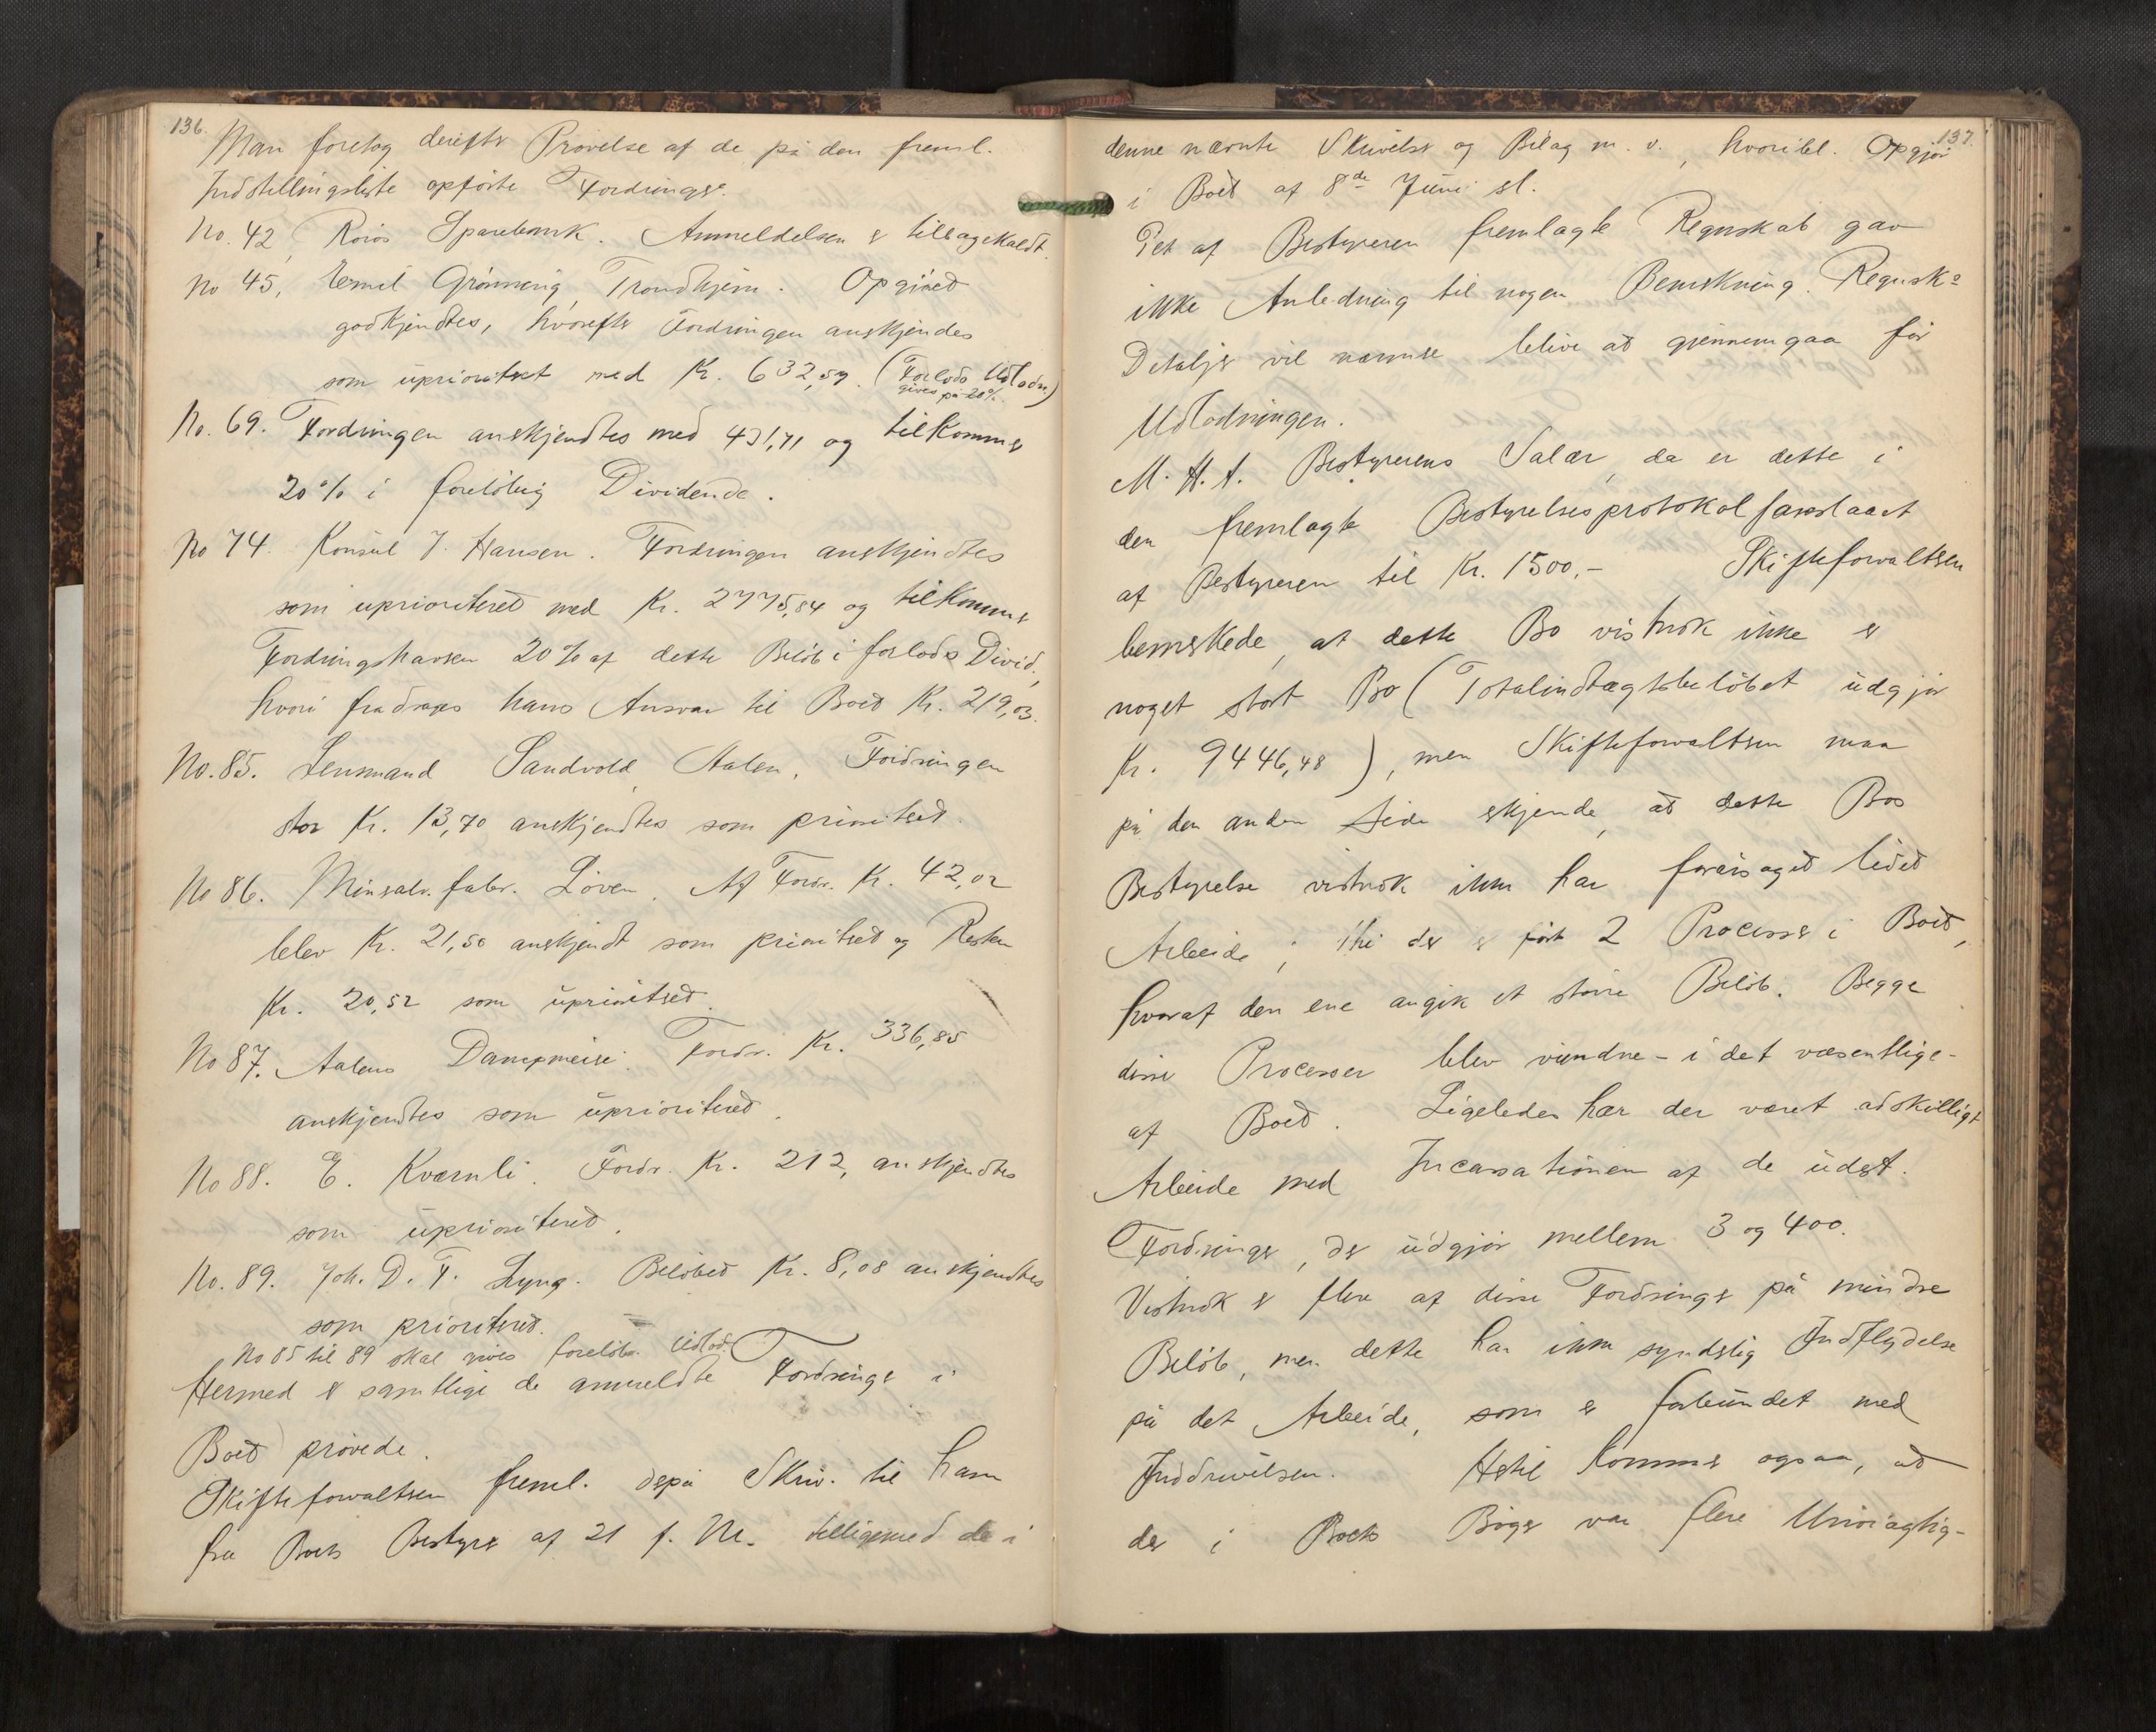 136.
Man foretog derefter Prøvelse af de på den freml.
Indstillingsliste opførte Fordringer.
No. 42, Røros Sparebank. Anmeldelsen er tilbagekaldt.
No 45, Emil Grønning, Trondhjem. Opgjøret
godkjendtes, hvorefter Fordringen anerkjendes
som uprioritert med Kr. 632,59. (Forlods Udlodn.)
gives på 20%
No. 69. Fordringen anerkjendtes med 431,71 og tilkommer
20% i foreløbig Dividende.
No 74. Konsul J. Hansen. Fordringen anerkjendtes
som uprioriteret med Kr. 2775,84 og tilkommer
Fordringshaveren 20% af dette Beløb i forlods Divid.,
hvori fradrages hans Ansvar til Boet Kr. 219,03.
No. 85. Lensmand Sandvold, Aalen. Fordringen
stor Kr. 13,70 anerkjendtes som prioriteret.
No 86. Mineralv. fabr. Løven. Af Fordr. Kr. 42,02
blev Kr. 21,50 anerkjendt som prioriteret og Resten
Kr. 20,52 som uprioriteret.
No 87. Aalens Dampmeieri. Fordr. Kr. 336,85
anerkjendtes som uprioriteret.
No 88. E. Kværnli. Fordr. Kr. 212, anerkjendtes
som uprioriteret.
No. 89. Joh. D. F. Lyng. Beløbet Kr. 8,08 anerkjendtes
som prioriteret.
No 85 til 89 skal gives foreløb. Udlod.
Hermed er samtlige de anmeldte Fordringer i
Boet prøvede.
Skifteforvalteren freml. derpå Skriv. til ham
fra Boets Bestyrer af 21 f. M. tilligemed de i
137.
denne nævnte Skrivelse og Bilag m. v., hvoribl. Opgjør
i Boet af 8de Juni sl.
Det af Bestyreren fremlagte Regnskab gav
ikke Anledning til nogen Bemerkning. Regnsk.
Detaljer vil nærmere blive at gjennemgaa før
Udlodningen.
M. H. t. Bestyrerens Salær, da er dette i
den fremlagte Bestyrelsesprotokol foreslaaet
af Bestyreren til Kr. 1500,- Skifteforvalteren
bemerkede, at dette Bo vistnok ikke er
noget stort Bo (Totalindtægtsbeløbet udgjør
Kr. 9446,48), men Skifteforvalteren maa
på den anden Side erkjende, at dette Bos
Bestyrelse vistnok ikke har forårsaget lidet
Arbeide; thi der er ført 2 Processer i Boet,
hvoraf den ene angik et større Beløb. Begge
disse Processer blev vundne - i det væsentlige -
af Boet. Ligeledes har der været adskilligt
Arbeide med Incassationen af de udest.
Fordringer, der udgjør mellem 3 og 400.
Vistnok er flere af disse Fordringer på mindre
Beløb, men dette har ikke synderlig Indflydelse
på det Arbeide, som er forbundet med
Inddrivelsen. Hertil kommer ogsaa, at
der i Boets Bøger var flere Unøiagtig-